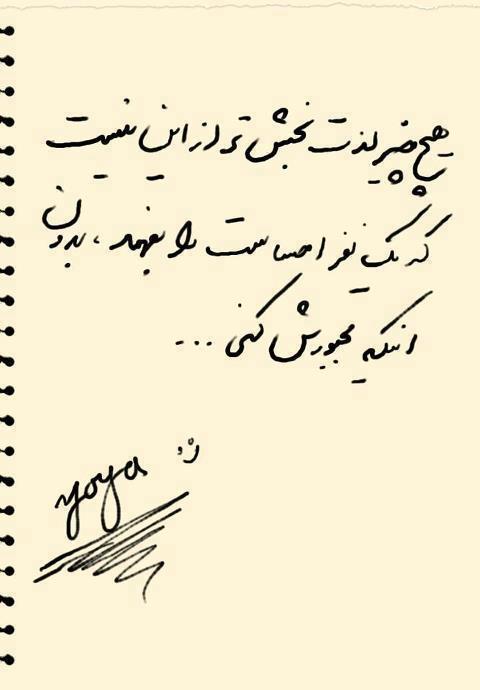 هیچ چیز لذت بخش تر از این نیست
که یک نفر احساست را بفهمد، بدون
اینکه مجبورش کنی ...
yoya